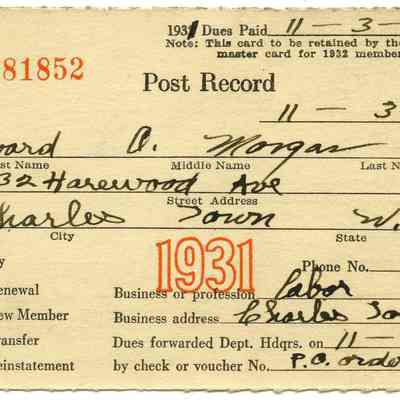 1931 Dues Paid 11-3-
Note: This card to be retained by the
master card for 1932 member
81852
Post Record
11-3
ward A. Morgan
st Name Middle Name Last N
32 Harewood Ave
Street Address
Charles Town W.
City State
y 1931 Phone No.
enewal Business or profession Labor
ew Member Business address Charles To
ransfer Dues forwarded Dept. Hdqrs. on 11-
einstatement by check or voucher No. P.O. orde